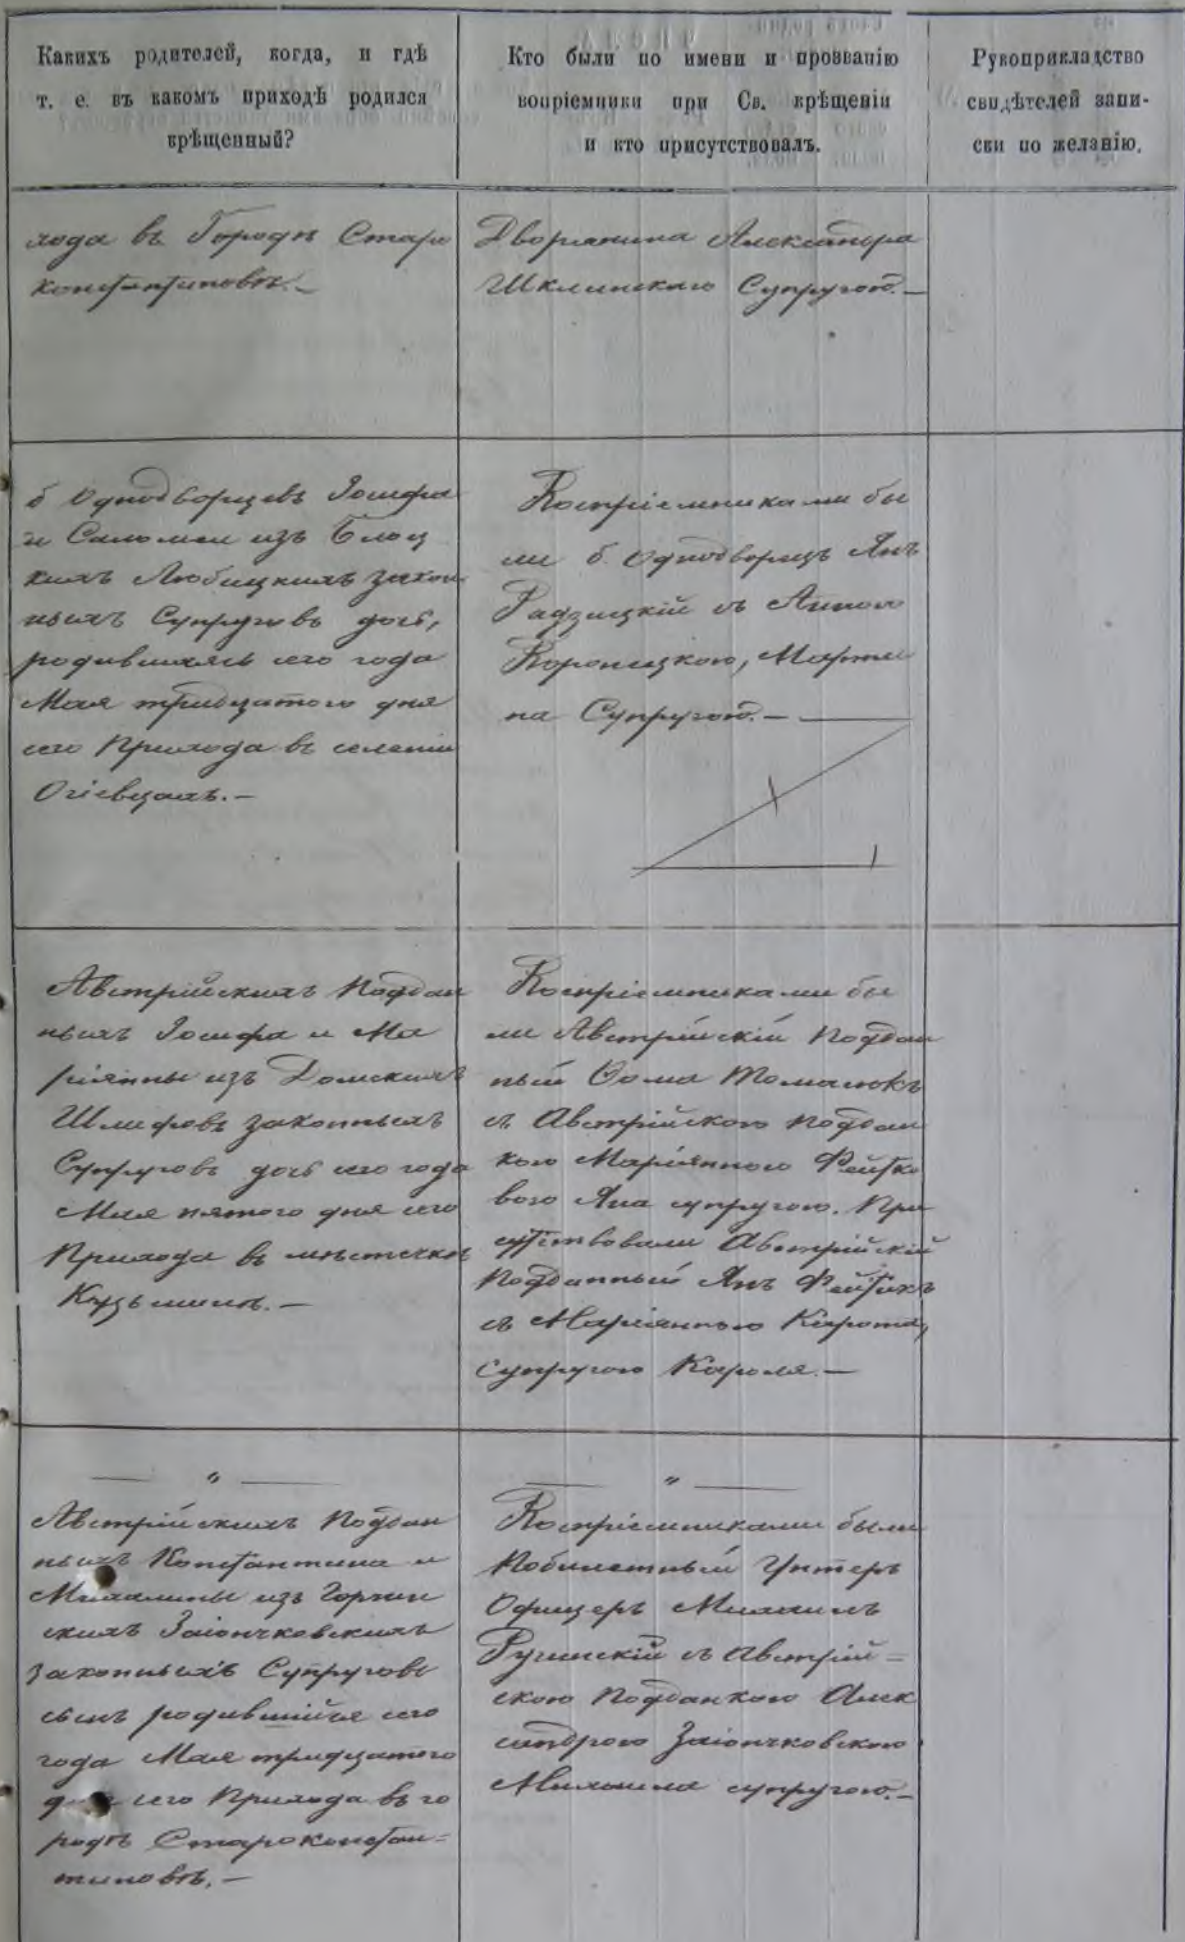 Какихъ родителей, когда, и гдѣ
т. е. въ какомъ приходѣ родился
крѣщенный?
Кто были по имени и прозванію
вопріемники при Св. крѣщеніи
и кто присутствовалъ.
Рукоприкладство
свидѣтелей запи-
ски по желанію.
хода въ Городѣ Старо
константиновѣ.—
Дворянина Александра
Шклинскаго Супругою.—
б Однодворцевъ Іосифа
и Саломеи изъ Блоц
кихъ Любицкихъ закон
ныхъ Супруговъ дочь,
родившаясь сего года
Мая тридцатого дня
сего Прихода въ селеніи
Огіевцахъ.—
Воспріемниками бы
ли б. Однодворецъ Янъ
Радзицкій съ Анною
Вороницкою, Марти
на Супругою.—
Австрійскихъ Поддан
ныхъ Іосифа и Ма
ріянны изъ Домскихъ
Шлифовъ законныхъ
Супруговъ дочь сего года
Мая пятого дня сего
Прихода въ мѣстечкѣ
Кузьминѣ.—
Воспріемниками бы
ли Австрійскій Поддан
ный Ѳома Томалюкъ
съ Австрійскою Поддан
кою Маріянною Фейтко
вою Яна супругою. При
сутствовали Австрійскій
Подданный Янъ Фейтикъ
съ Маріянною Карота,
супругою Кароля.—
— " —
Австрійскихъ Поддан
ныхъ Константина и
Михалины изъ Горчин
скихъ Заіончковскихъ
законныхъ Супруговъ
сынъ родившійся сего
года Мая тридцатого
дня сего Прихода въ го
родѣ Староконстан=
тиновѣ.—
— " —
Воспріемниками были
Побилетный Унтеръ
Офицеръ Михаилъ
Ручинскій съ Австрій=
скою Подданкою Алек
сандрою Заіончковскою
Михаила супругою.—